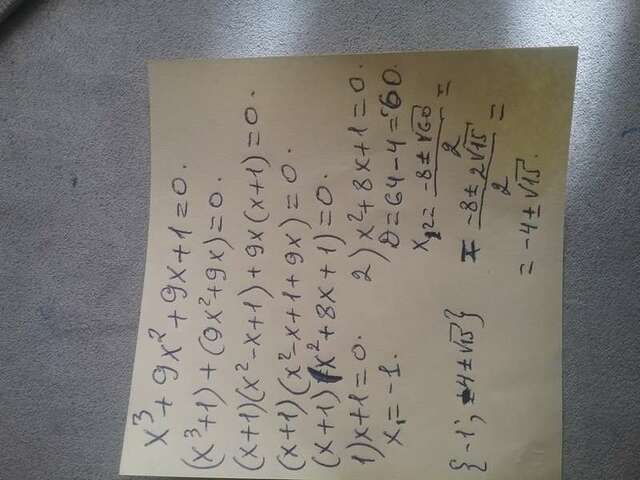 x³ + 9x² + 9x + 1 = 0.
(x³+1) + (9x²+9x) = 0.
(x+1)(x²-x+1) + 9x(x+1) = 0.
(x+1)(x²-x+1+9x) = 0.
(x+1)(x²+8x+1) = 0.
1) x+1 = 0.
x₁ = -1.
2) x²+8x+1 = 0.
D = 64-4 = 60.
x₁,₂ = (-8 ± √60)/2 =
= (-8 ± 2√15)/2 =
= -4 ± √15.
{-1; -4 ± √15}